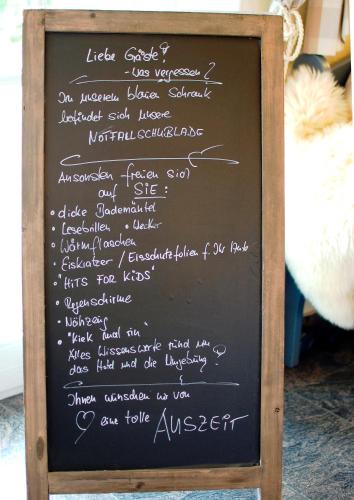 Liebe Gäste!
- was vergessen?
In unserem blauen Schrank
befindet sich unsere
NOTFALLSCHUBLADE
Ansonsten freuen sich
auf SIE:
• dicke Bademäntel
• Lesebrillen • Wecker
• Wärmflaschen
• Eiskratzer / Eisschutzfolien f. Ihr Auto
• "HITS FOR KIDS"
• Regenschirme
• Nähzeug
• "kiek mal rin"
Alles Wissenswerte rund um
das Hotel und die Umgebung!
Ihnen wünschen wir von
eine tolle AUSZEIT